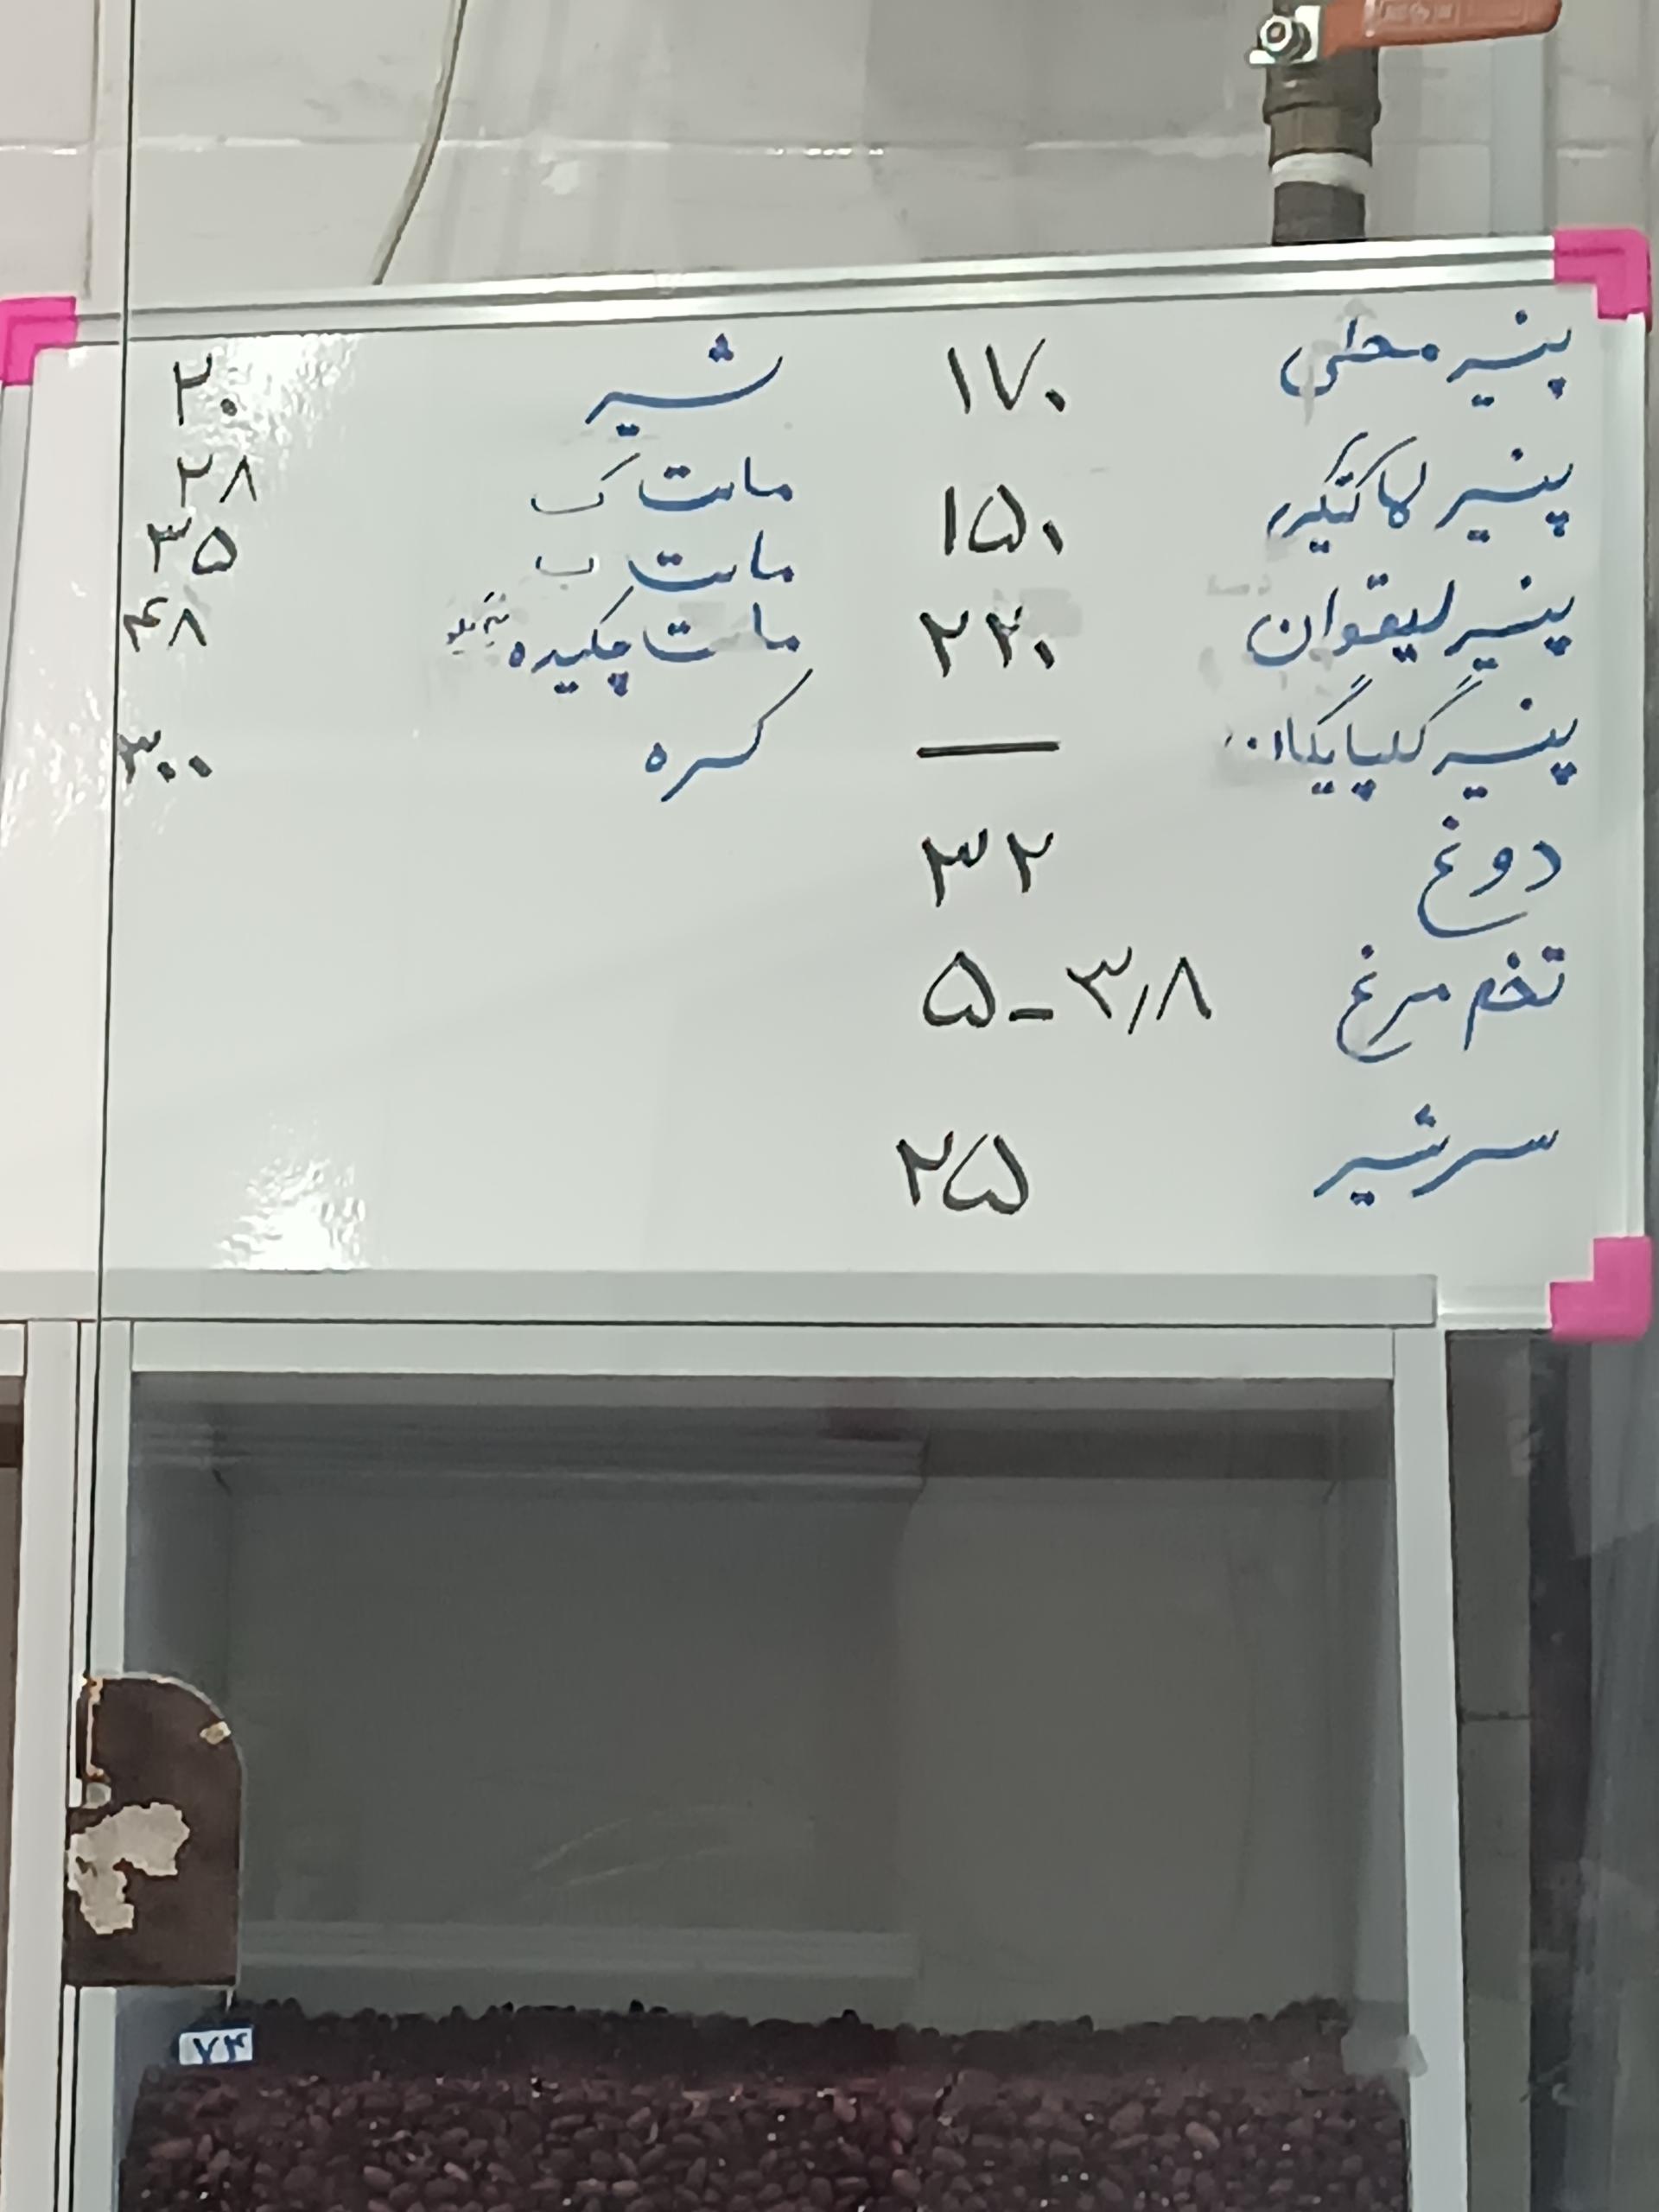 پنیر محلی ۱۷۰
پنیر لاکتیکی ۱۵۰
پنیر لیقوان ۲۲۰
پنیر گلپایگان —
دوغ ۳۲
تخم مرغ ۳٫۸ - ۵
سرشیر ۲۵
شیر ۲۰
ماست ک ۲۸
ماست ب ۳۵
ماست چکیده ۴۸
کره ۳۰۰
۷۴